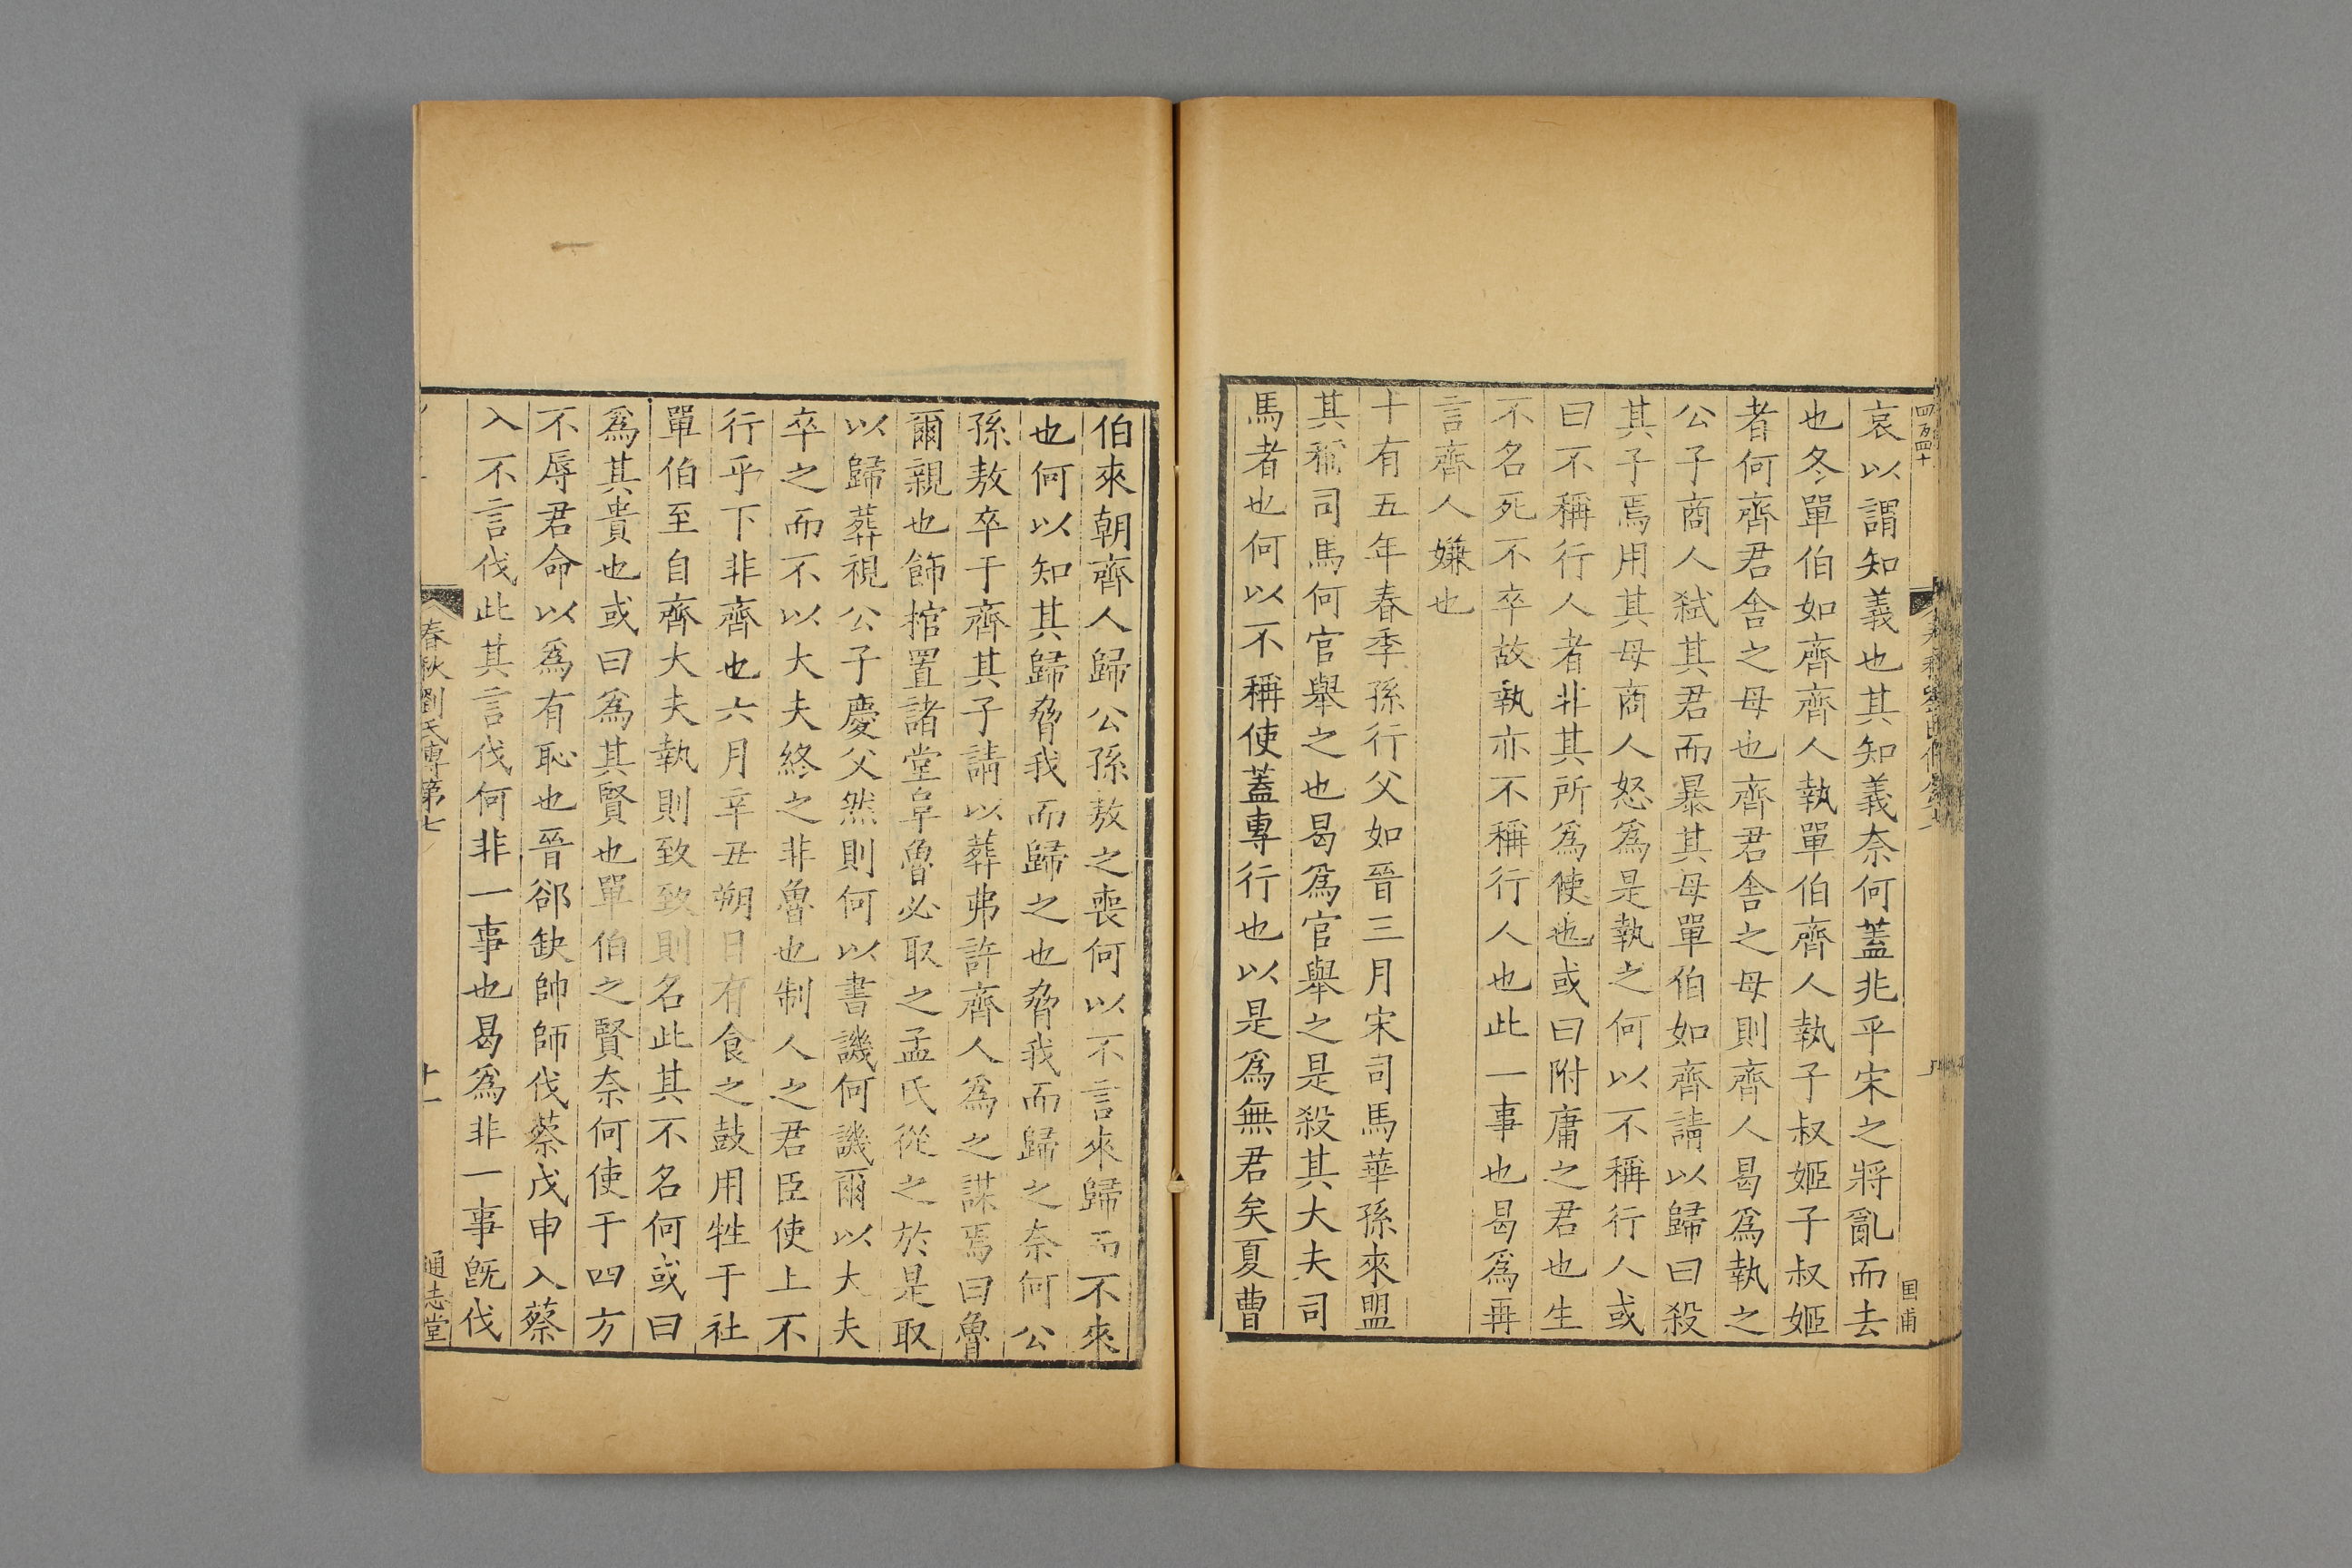 哀以謂知義也其知義奈何蓋非乎宋之將亂而去
也冬單伯如齊齊人執單伯齊人執子叔姬子叔姬
者何齊君舍之母也齊君舍之母則齊人曷爲執之
公子商人弑其君而暴其母單伯如齊請以歸曰殺
其子焉用其母商人怒爲是執之何以不稱行人或
曰不稱行人者非其所爲使也或曰附庸之君也生
不名死不卒故執亦不稱行人也此一事也曷爲再
言齊人嫌也
十有五年春季孫行父如晉三月宋司馬華孫來盟
其稱司馬何官舉之也曷爲官舉之是殺其大夫司
馬者也何以不稱使蓋專行也以是爲無君矣夏曹
伯來朝齊人歸公孫敖之喪何以不言來歸而不來
也何以知其歸脅我而歸之也脅我而歸之奈何公
孫敖卒于齊其子請以葬弗許齊人爲之謀焉曰魯
爾親也飾棺置諸堂阜魯必取之孟氏從之於是取
以歸葬視公子慶父然則何以書譏何譏爾以大夫
卒之而不以大夫終之非魯也制人之君臣使上不
行乎下非齊也六月辛丑朔日有食之鼓用牲于社
單伯至自齊大夫執則致致則名此其不名何或曰
爲其貴也或曰爲其賢也單伯之賢奈何使于四方
不辱君命以爲有恥也晉郤缺帥師伐蔡戊申入蔡
入不言伐此其言伐何非一事也曷爲非一事旣伐
春秋劉氏傳第七
十一
通志堂